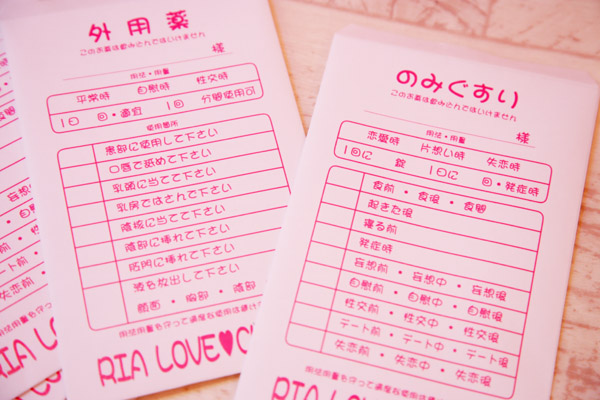 外用薬
このお薬は飲みこんではいけません
様
用法・用量
平常時 自慰時 性交時
1日 回・適宜 1回 分間使用可
使用箇所
患部に使用して下さい
口唇で舐めて下さい
乳頭に当てて下さい
乳房ではさんで下さい
陰核に当てて下さい
陰部に挿れて下さい
肛門に挿れて下さい
液を放出して下さい
顔面・胸部・陰部
用法用量を守って適度な使用
RIA LOVE♥C
のみぐすり
このお薬は飲みこんではいけません
様
用法・用量
恋愛時 片想い時 失恋時
1回に 錠 1日に 回・発症時
食前・食後・食間
起きた後
寝る前
発症時
妄想前・妄想中・妄想後
自慰前・自慰中・自慰後
性交前・性交中・性交後
デート前・デート中・デート後
失恋前・失恋中・失恋後
用法用量を守って適度な使用
RIA LOVE